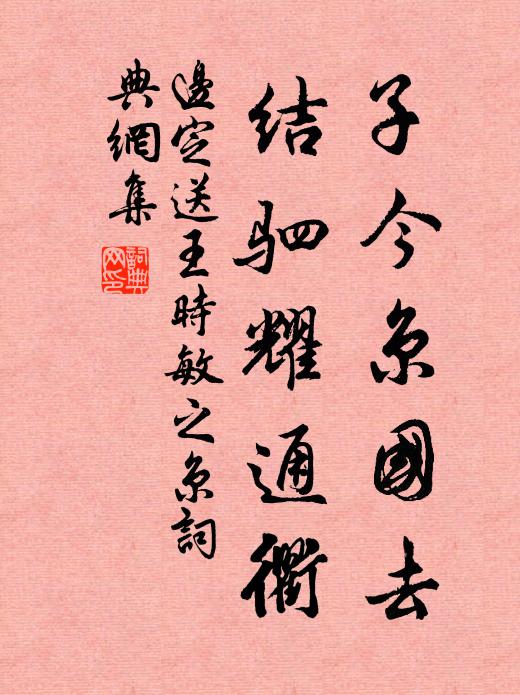 子今京國去
結駟耀通衢
邊定送王時敏之京詞
典網集
詞典網印